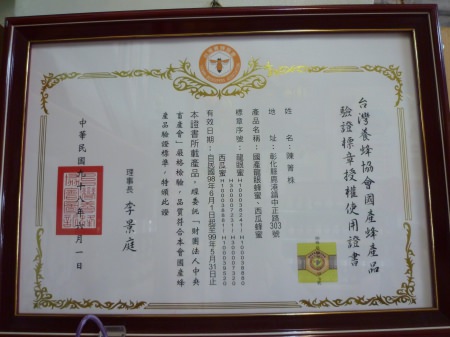 台灣養蜂協會國產蜂產品
驗證標章授權使用證書
姓名：陳菁株
地址：彰化縣鹿港鎮中正路303號
產品名稱：國產龍眼蜂蜜、西瓜蜂蜜
標章序號：龍眼蜜
西瓜蜜
有效日期：自民國98年6月1日起至99年5月31日止
本證書所載產品，經委託「財團法人中央
畜產會」嚴格檢驗，品質符合本會國產蜂
產品驗證標準，特頒此證
理事長 李景庭
中華民國九十八年六月一日